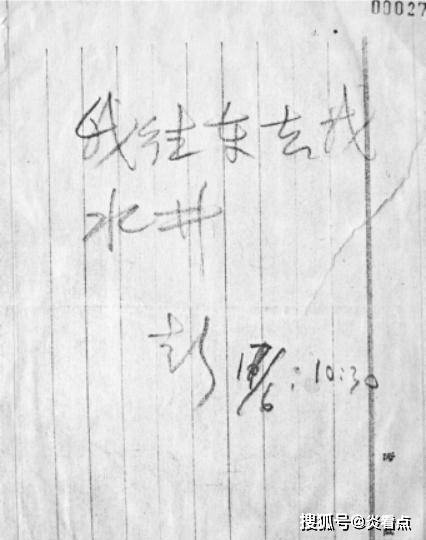 00027
我往东去找
水井
彭 17/6:10:30
搜狐号@炎看点